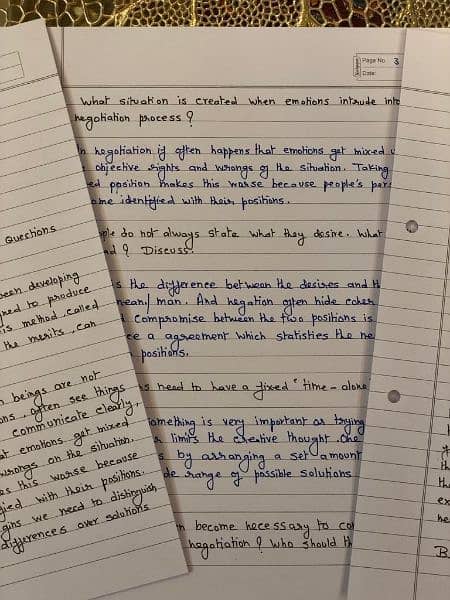 Page No. 3
Date:
What situation is created when emotions intrude into
negotiation process?
In negotiation it often happens that emotions get mixed
objective rights and wrongs of the situation. Taking
position makes this worse because people's
identified with their positions.
do not always state what they desire. What
? Discuss.
the difference between the desires and
man. And negation often hide
compromise between the two positions is
a agreement which statisties the
positions.
need to have a fixed "time-alone
something is very important as trying
limits the creative thought. One
by arranging a set amount
range of possible solutions
become necessary to
negotiation? Who should
Questions
been developing
to produce
method called
the merits, can
beings are not
often see things
communicate clearly.
emotions get mixed
wrongs on the situation.
this worse because
with their positions.
we need to distinguish
differences over solutions